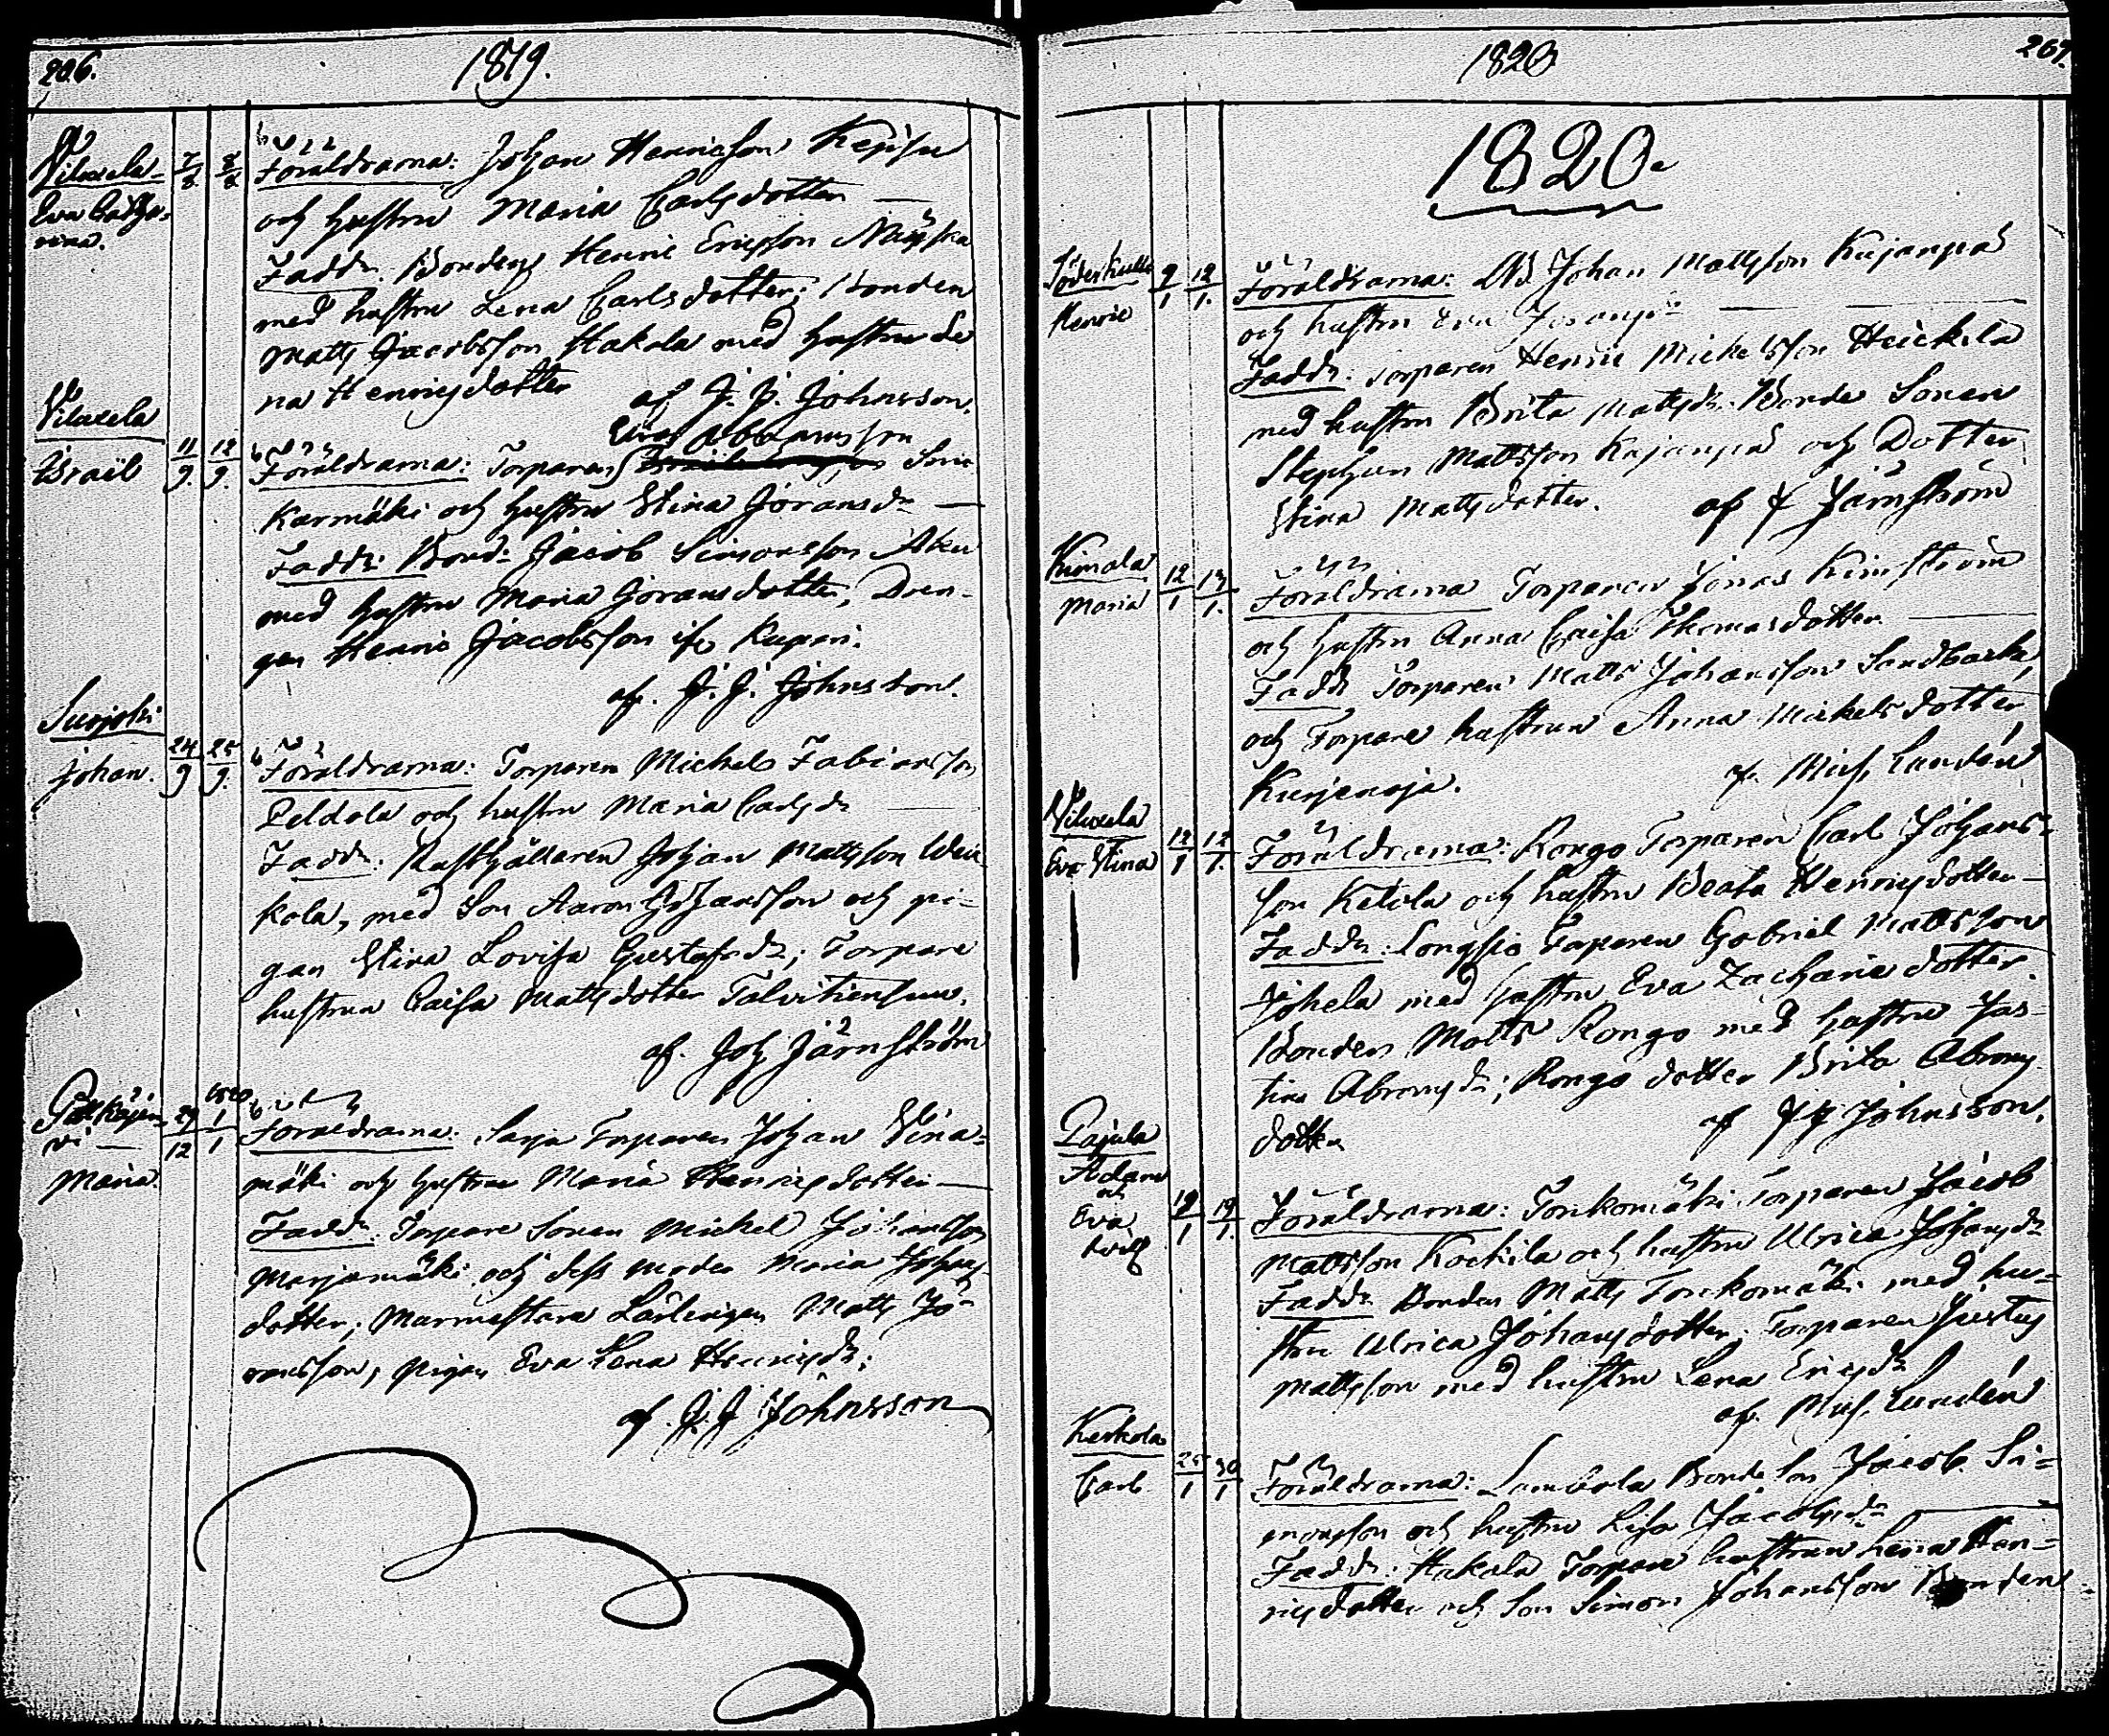 206.
1819.
Viluxela
Eva Catha-
rina.
7/8 8/8
Föräldrarna: Johan Henricsson
och hustru Maria Carlsdotter
Fadd: Bonden Henric Ericsson
med hustru Lena Carlsdotter; Bonden
Matts Jacobsson Hakola med hustru Le
na Henricsdotter
af J. J. Johnsson.
Viluxela
Israël
11/9. 12/9.
Abramsson
Föräldrarna: Torparen
Karmäki och hustru Stina Göransdr
Fadd: Bond: Jacob Simonsson
med hustru Maria Göransdotter, Dren-
gen Henric Jacobsson
af. J. J. Johnsson.
Suojoki
Johan.
24/9 25/9.
Föräldrarna: Torparen Michel Fabiansson
Peldola och hustru Maria Carlsdr
Fadd: Rusthållaren Johan Mattsson
kola, med Son Aaron Johansson och pi-
gan Stina Lovisa Gustafsdr; Torpare
hustrun Caisa Mattsdotter
af. Joh Järnström
Pitkäjär-
vi
Maria.
29/12 1820 1/1
Föräldrarna: Sarja Torparen Johan Sina-
mäki och hustru Maria Henricsdotter
Fadd: Torpare Sonen Michel Johansson
Marjamäki och dess moder Maria Johans-
dotter; Murmestare Lärlingen Matts Jö-
ransson, pigan Eva Lena Henricsdr:
af. J. J Johnsson
1820
267.
1820.
Söderkulla
Henric
9/1 12/1.
Föräldrarna: Johan Mattsson Kujanpä
och hustru Eva
Fadd: Torparen Henric Mickelsson Heickilä
med hustru Brita Mattsdr. Bonde Sonen
Stephan Mattsson Kujanpä och Dotter
Stina Mattsdotter.
af J Järnström
Kimala
Maria
12/1 13/1.
Föräldrarna Torparen Jonas Kimström
och hustru Anna Caisa Thomasdotter
Fadd Torparen Matts Johansson Sandbacka,
och Torpare hustrun Anna Mickelsdotter
Kurjenoja.
af. Mich. Lundén
Viluxela
Eva Stina
12/1 12/1.
Föräldrarna: Rongo Torparen Carl Johans-
son Ketola och hustru Beata Henricsdotter
Fadd: Torparen Gabriel Mattsson
Johela med hustru Eva Zachariedotter
Bonden Matts Rongo med hustru Jus-
tina Abramsdr; Rongo dotter Brita Abrams
dotter
af JJ Johnsson.
Pajula
Adam
och
Eva
tvill
19/1 19/1.
Föräldrarna: Tonkomäki Torparen Jacob
Mattsson Kockila och hustru Ulrica Johansdr
Fadd: Bonden Matts Tonkomäki med hu-
stru Ulrica Johansdotter; Torparen Justus
Mattsson med hustru Lena Ericsdr
af. Mich. Lundén
Keskola
Carl
25/1 30/1
Föräldrarna: Lambola Bonde Son Jacob Si-
monsson och hustru Lisa Jacobsdr
Fadd: Hakola Torpare hustrun Lena Hen-
ricsdotter och Son Simon Johansson Bonden